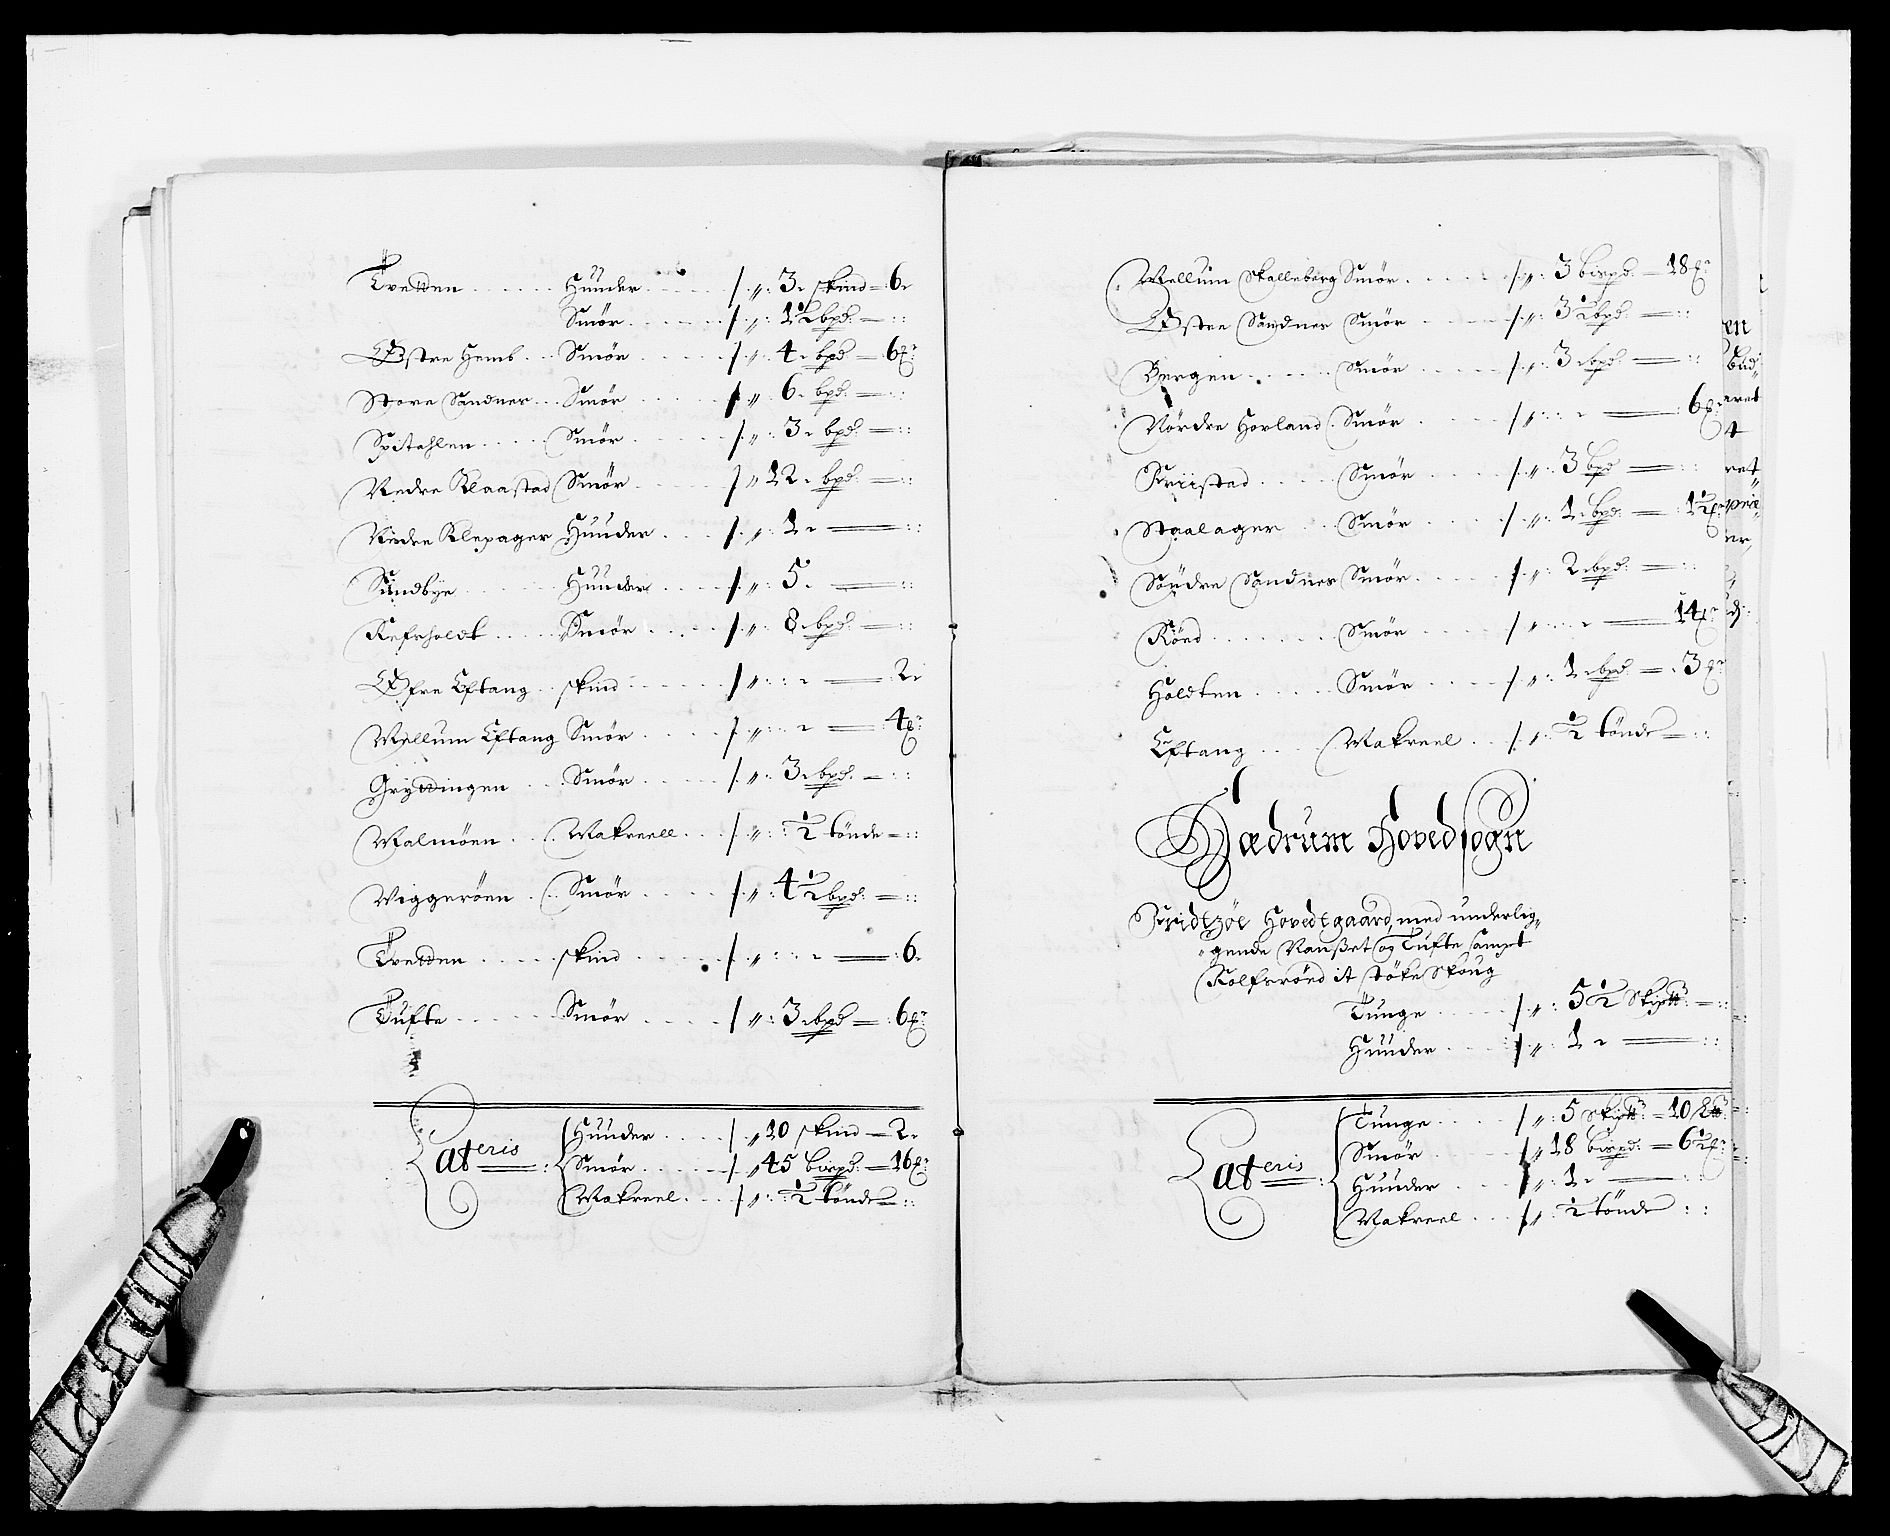 Tvedten ...... Huuder ...... / „ : 3. skind — 6.
Smør ...... / „ : 1½ bpd. — ::
Østre Hemb ... Smør ...... / „ : 4. bpd — 6
Store Sandnes ... Smør ...... / „ 6. bpd. — ::
Spitahlen ..... Smør ...... / „ : 3. bpd. — ::
Nedre Klaastad Smør ...... / „ 12. bpd. — ::
Nedre Klepager Huuder .... / „ : 1. — ::
Sundbye ...... Huuder .... / „ : 5. — ::
Refsholdt ..... Smør ..... / „ : 8. bpd. — ::
Øfre Eftang .. skind ...... / „ : : . — 2.
Mellum Eftang Smør ..... / „ : . — 4
Gryttingen .... Smør ..... / „ : 3. bpd. — ::
Malmøen ... Makreell ... / „ : ½ tønde — ::
Viggerøen ... Smør ..... / „ : 4½ bpd. — ::
Tvedten ..... skind ..... / „ : : . — 6.
Tufte ...... Smør ..... / „ : 3. bpd — 6
Lateris : Huuder ..... / „ 10 skind — 2.
Smør ..... / „ 45 bispd. — 16
Makreel .... / „ : ½ tønde — ::
Mellum Skalleberg Smør ..... / „ : 3 bispd. — 18
Østre Sandnes Smør ..... / „ : 3½ bpd. — ::
Bergen ...... Smør ..... / „ : 3. bpd — ::
Nordre Horland Smør .... / „ : : . — 6
Kriistad ..... Smør .... / „ : 3 bpd — ::
Staalager ... Smør .... / „ : 1. bpd. — 1½
Søndre Sandnes Smør .... / „ : 2. bpd. — ::
Röed ....... Smør .... / „ : : . — 14
Holdten ..... Smør .... / „ : 1. bpd. — 3
Eftang .... Makreel ... / „ : ½ tønde — ::
Hædrum Hovedsogn
Fridtzøe Hovedtgaard, med underlig„
„gende Nanset og Tufte sampt
Rolfsröed it Støke Skoug
Tunge ..... / „ : 5½ Skip — ::
Huuder .... / „ : 1. — ::
Lateris : Tunge .... / „ : 5 Skip — 10
Smør .... / „ 18 bispd. — 6½
Huuder .... / „ : 1. — ::
Makreel ... / „ : ½ tønde ::